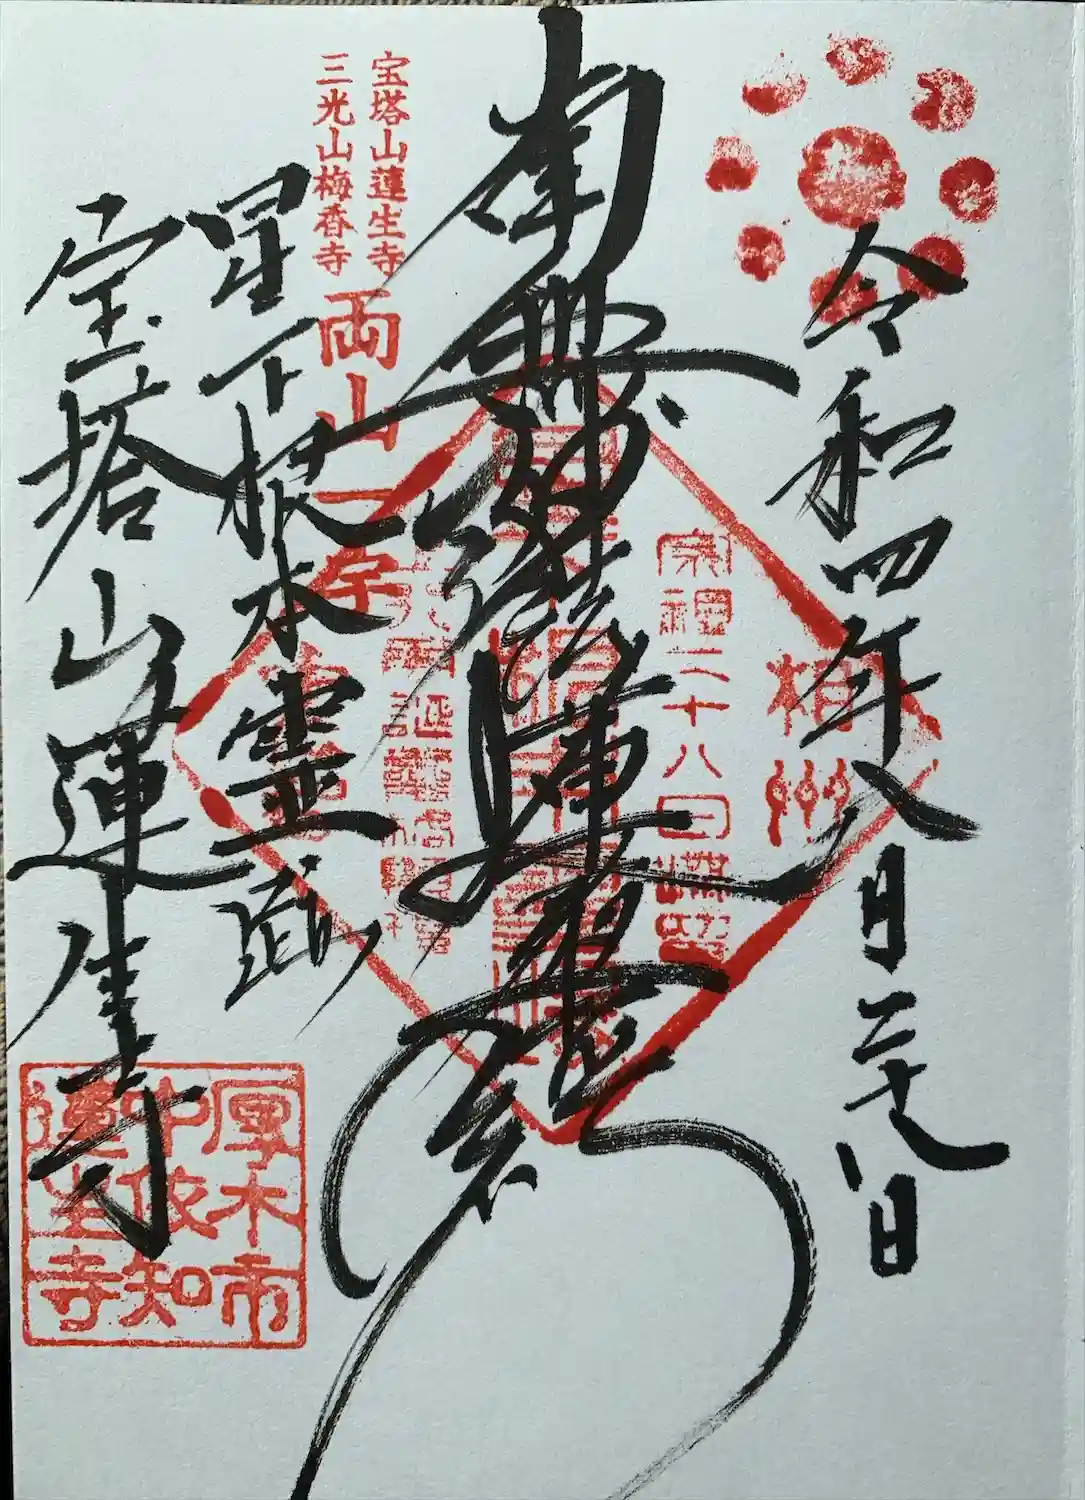 令和四年八月二十八日
南無妙法蓮華経
宝塔山蓮生寺
三光山梅香寺
両山一宇
星下根本霊蹟
宝塔山蓮生寺
相州
宗祖二十八日
厚木市
中依知
蓮生寺